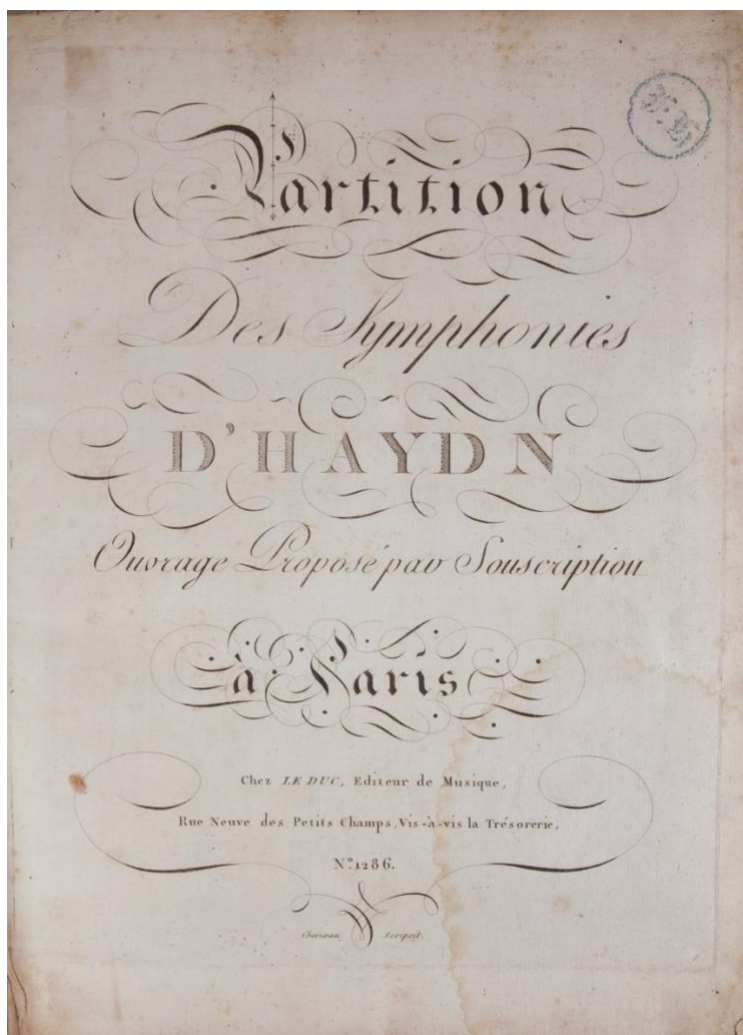 Partition
Des Symphonies
D'HAYDN
Ouvrage Proposé par Souscription
à Paris
Chez LE DUC, Editeur de Musique,
Rue Neuve des Petits Champs, Vis-à-vis la Trésorerie,
N.º 1286.
Scripsit.